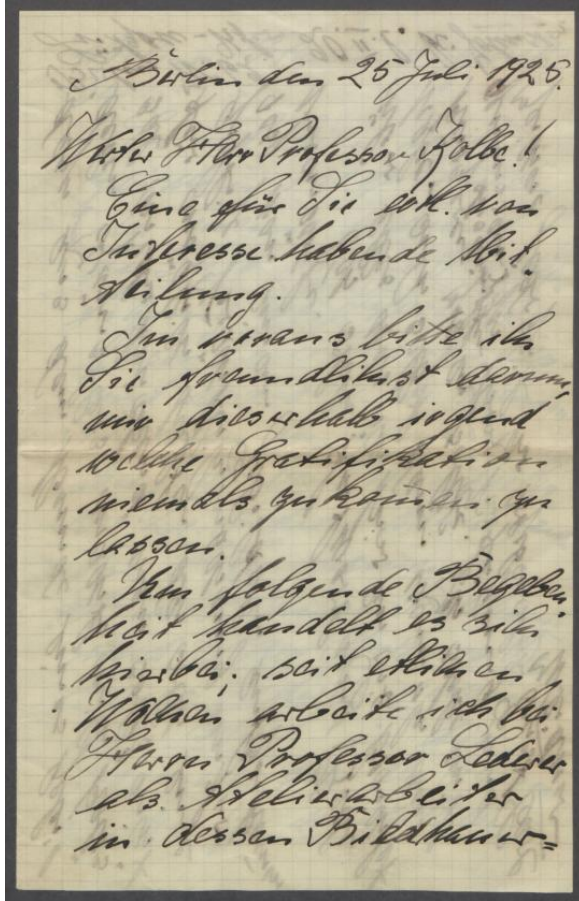 Berlin den 25 Juli 1925.
Werter Herr Professor Kolbe!
Eine für Sie evtl. von
Interesse habende Mit-
teilung.
Im voraus bitte ich
Sie freundlichst darum,
mir dieserhalb irgend
welche Gratifikation
niemals zukom̅en zu
lassen.
Um folgende Begeben-
heit handelt es sich
hierbei; seit etlichen
Wochen arbeite ich bei
Herrn Professor Lederer
als Atelierarbeiter
in dessen Bildhauer=